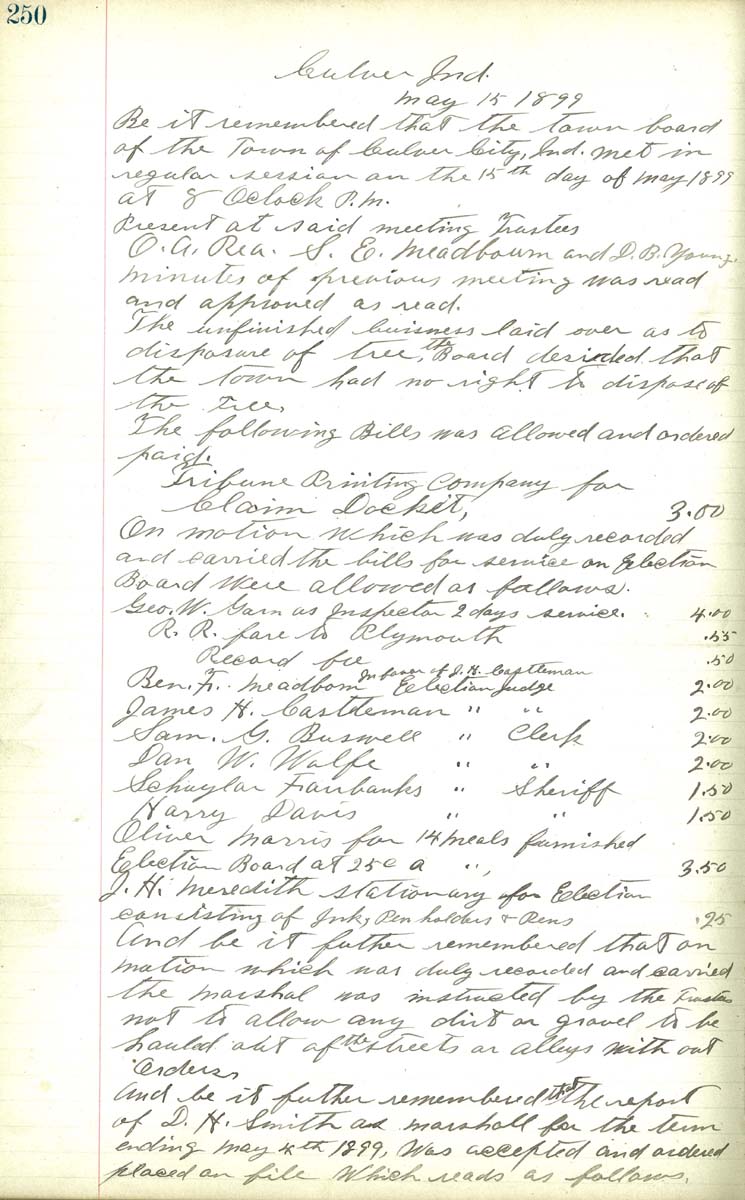 250
Culver Ind.
May 15 1899
Be it remembered that the town board
of the Town of Culver City, Ind. met in
regular session on the 15th day of May 1899
at 8 Oclock P.M.
Present at said meeting Trustees
O. A. Rea. S. E. Meadbourn and D. B. Young.
minutes of previous meeting was read
and approved as read.
The unfinished buisness laid over as to
disposure of tree, the Board desided that
the town had no right to dispose of
the tree,
The following Bills was allowed and ordered
paid.
Tribune Printing Company for
Claim Docket, 3.00
On motion which was duly recorded
and carried the bills for service on Election
Board were allowed as follows.
Geo. W. Garn as Inspector 2 days service. 4.00
R. R. fare to Plymouth .55
Record fee .50
In favor of J. H. Castleman
Ben. F. Meadborn Election Judge 2.00
James H. Castleman " " 2.00
Sam. G. Buswell " Clerk 2.00
Dan W. Wolfe " " 2.00
Schuylar Fairbanks " Sheriff 1.50
Harry Davis " " 1.50
Oliver Morris for 14 meals furnished
Election Board at 25c a ", 3.50
J. H. Meredith stationary for Election
consisting of Ink, Pen holders & Pens .25
And be it futher remembered that on
motion which was duly recorded and carried
the marshal was instructed by the Trustees
not to allow any dirt or gravel to be
hauled out of the streets or alleys with out
orders
And be it futher remembered that the report
of D. H. Smith as marshall for the term
ending May 4th 1899, Was accepted and ordered
placed on file Which reads as follows.